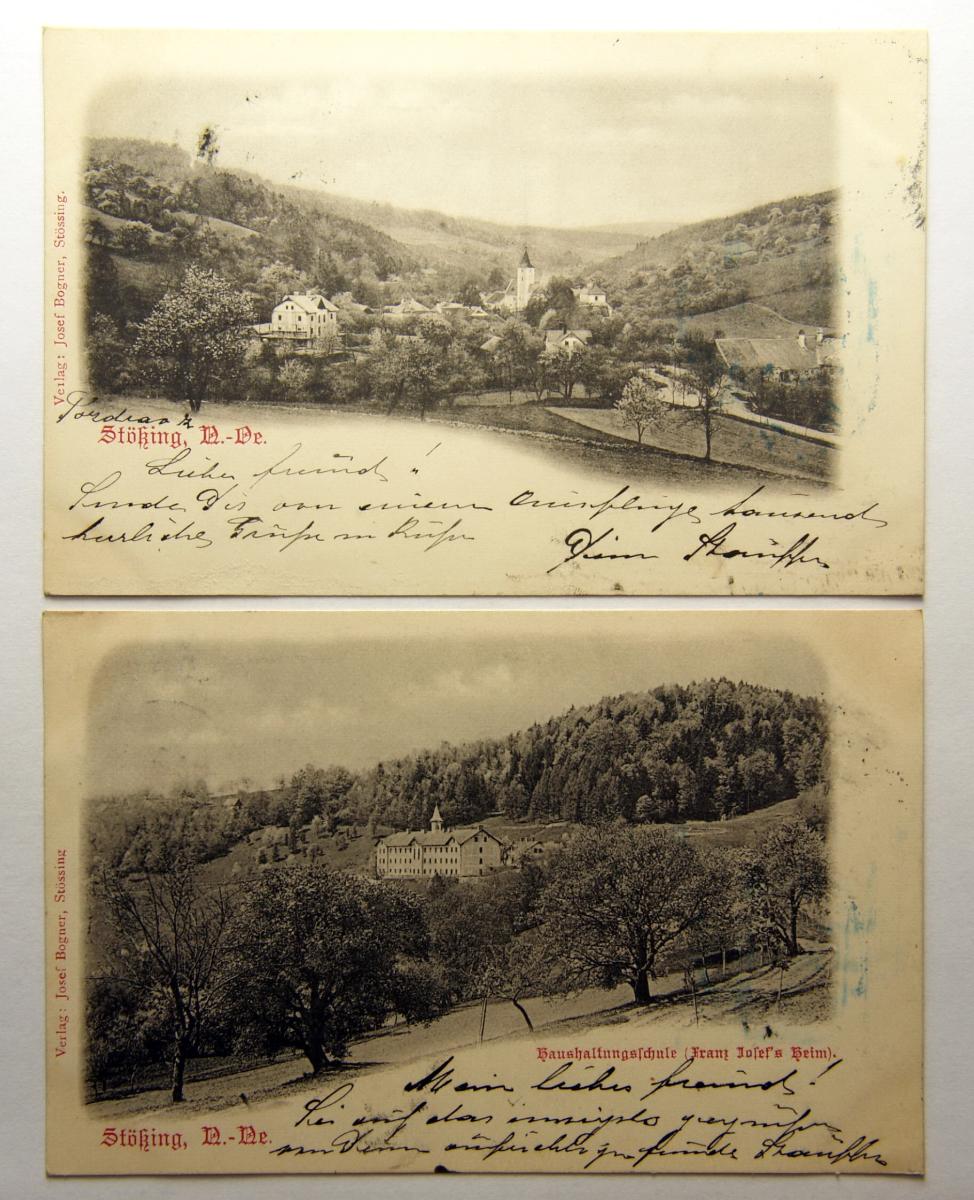 Verlag: Josef Bogner, Stössing.
Stößing, N.-Oe.
Lieber Freund!
Sende Dir von einem Ausfluge tausend
herzliche Grüße u Küße
Dein
Verlag: Josef Bogner, Stössing
Haushaltungsschule (Franz Josef's Heim).
Mein lieber Freund!
Sei auf das innigste gegrüßt
von Deinem aufrichtigen Freunde
Stößing, N.-Oe.